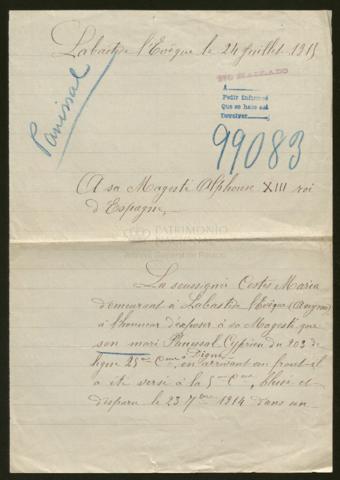 Labastide l'Evêque le 24 Juillet 1915
NO HALLADO
A
Pedir informes
Que se hace así
Devolver
Panissal
99083
A sa Magesté Alphonse XIII roi
d'Espagne,
PATRIMONIO
NACIONAL
La soussignée Costes Maria
demeurant à Labastide l'Evêque (Aveyron)
à l'honneur d'exposer à sa Magesté que
son mari Panissal Cyprien du 203 de
ligne 25me Cnie à Digne, en arrivant au front il
a été versé à la 5me Cnie, blessé et
disparu le 23 7bre 1914 dans un